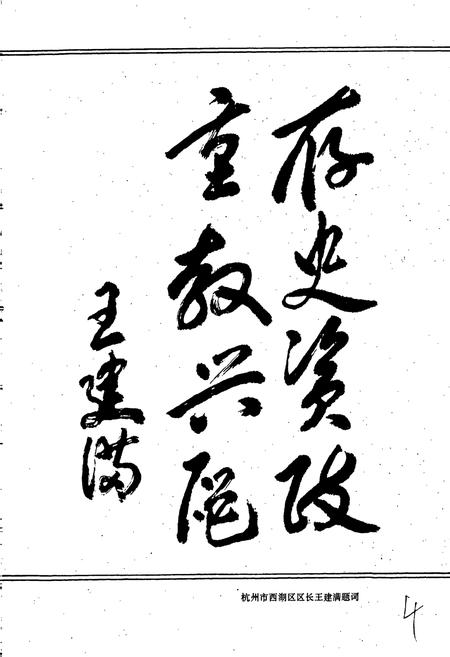 存史资政
重教兴區
王建满
杭州市西湖区区长王建满题词
4